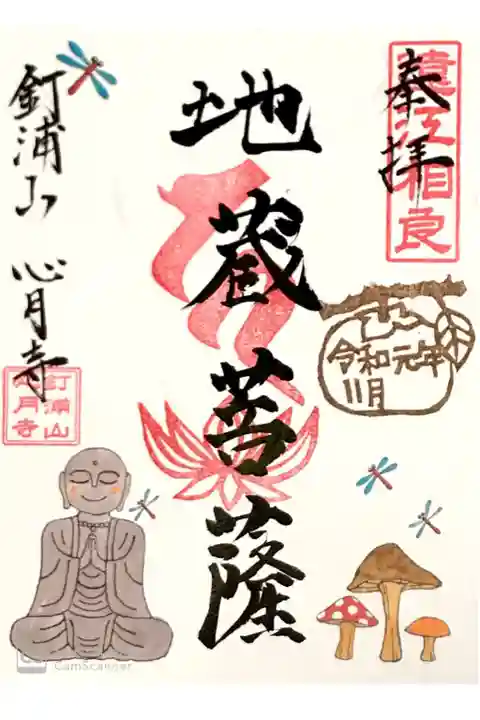 奉拝
遠江相良
令和元年
11月
地蔵菩薩
釘浦山 心月寺
釘浦山
心月寺
CamScanner